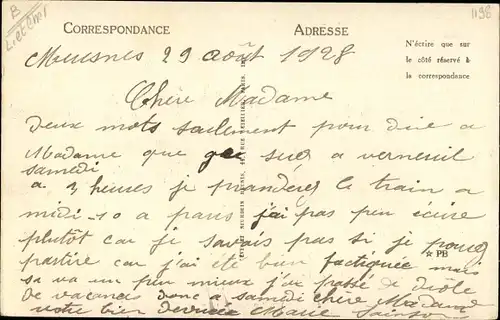 B
1198
CORRESPONDANCE
ADRESSE
N'écrire que sur
le côté réservé à
la correspondance
Meusnes 29 août 1928
Chère Madame
deux mots saeilement pour dire a
Madame que je sues a verneuil
samedi
a 3 heures je pranderez le train a
midi-10 a paris j'ai pas peu écire
plutôt car je savais pas si je pouvez
PB
partire car j'ai été bien factiquée mais
sa va un peu mieux j'ai passé de drole
de vacances donc a samedi chère Madame
votre bien devouée Marie